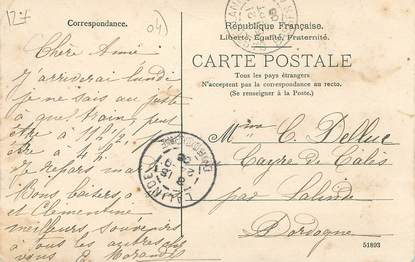 127
04)
Correspondance.
République Française.
Liberté, Egalité, Fraternité.
CARTE POSTALE
Tous les pays étrangers
N'acceptent pas la correspondance au recto.
(Se renseigner à la Poste.)
Chère Amie
J'arriverai lundi
je ne sais au juste
à quel train, peut
être à 11 h 1/2
être à 4 h.
Je repars mar
Bons baisers à
et Clémentine
meilleurs souvenirs
à tous les autres chez
vous
LALINDE
DORDOGNE
Mme C. Delluc
Cayre de Calès
par Lalinde
Dordogne
51893